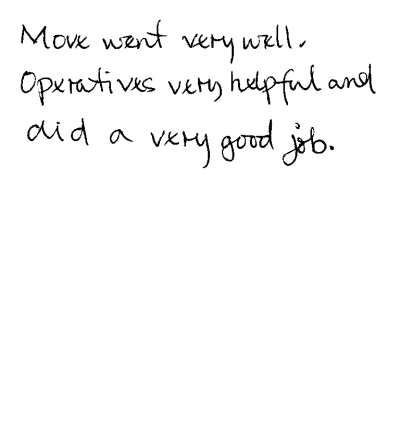 Move went very well.
Operatives very helpful and
did a very good job.